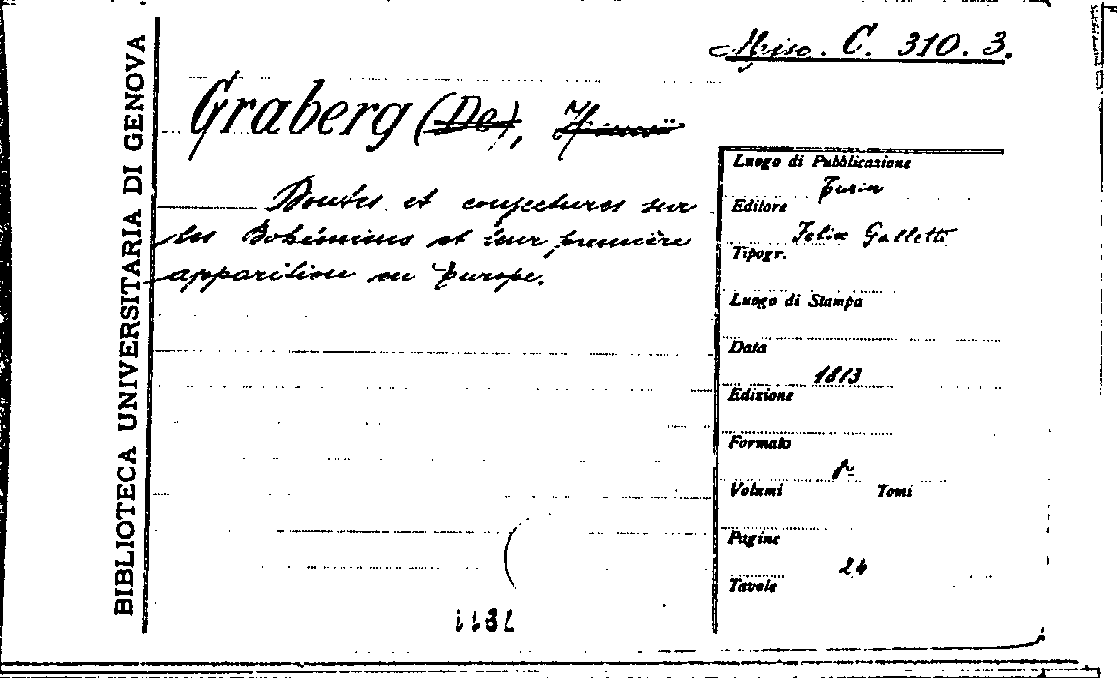 BIBLIOTECA UNIVERSITARIA DI GENOVA
Misc. C. 310. 3.
Graberg (De),
Doutes et conjectures sur
les Bohémiens et leur première
apparition en Europe.
Luogo di Pubblicazione
Turin
Editore
Felix Galletti
Tipogr.
Luogo di Stampa
Data
1813
Edizione
Formato
8º
Volumi Tomi
Pagine
24
Tavole